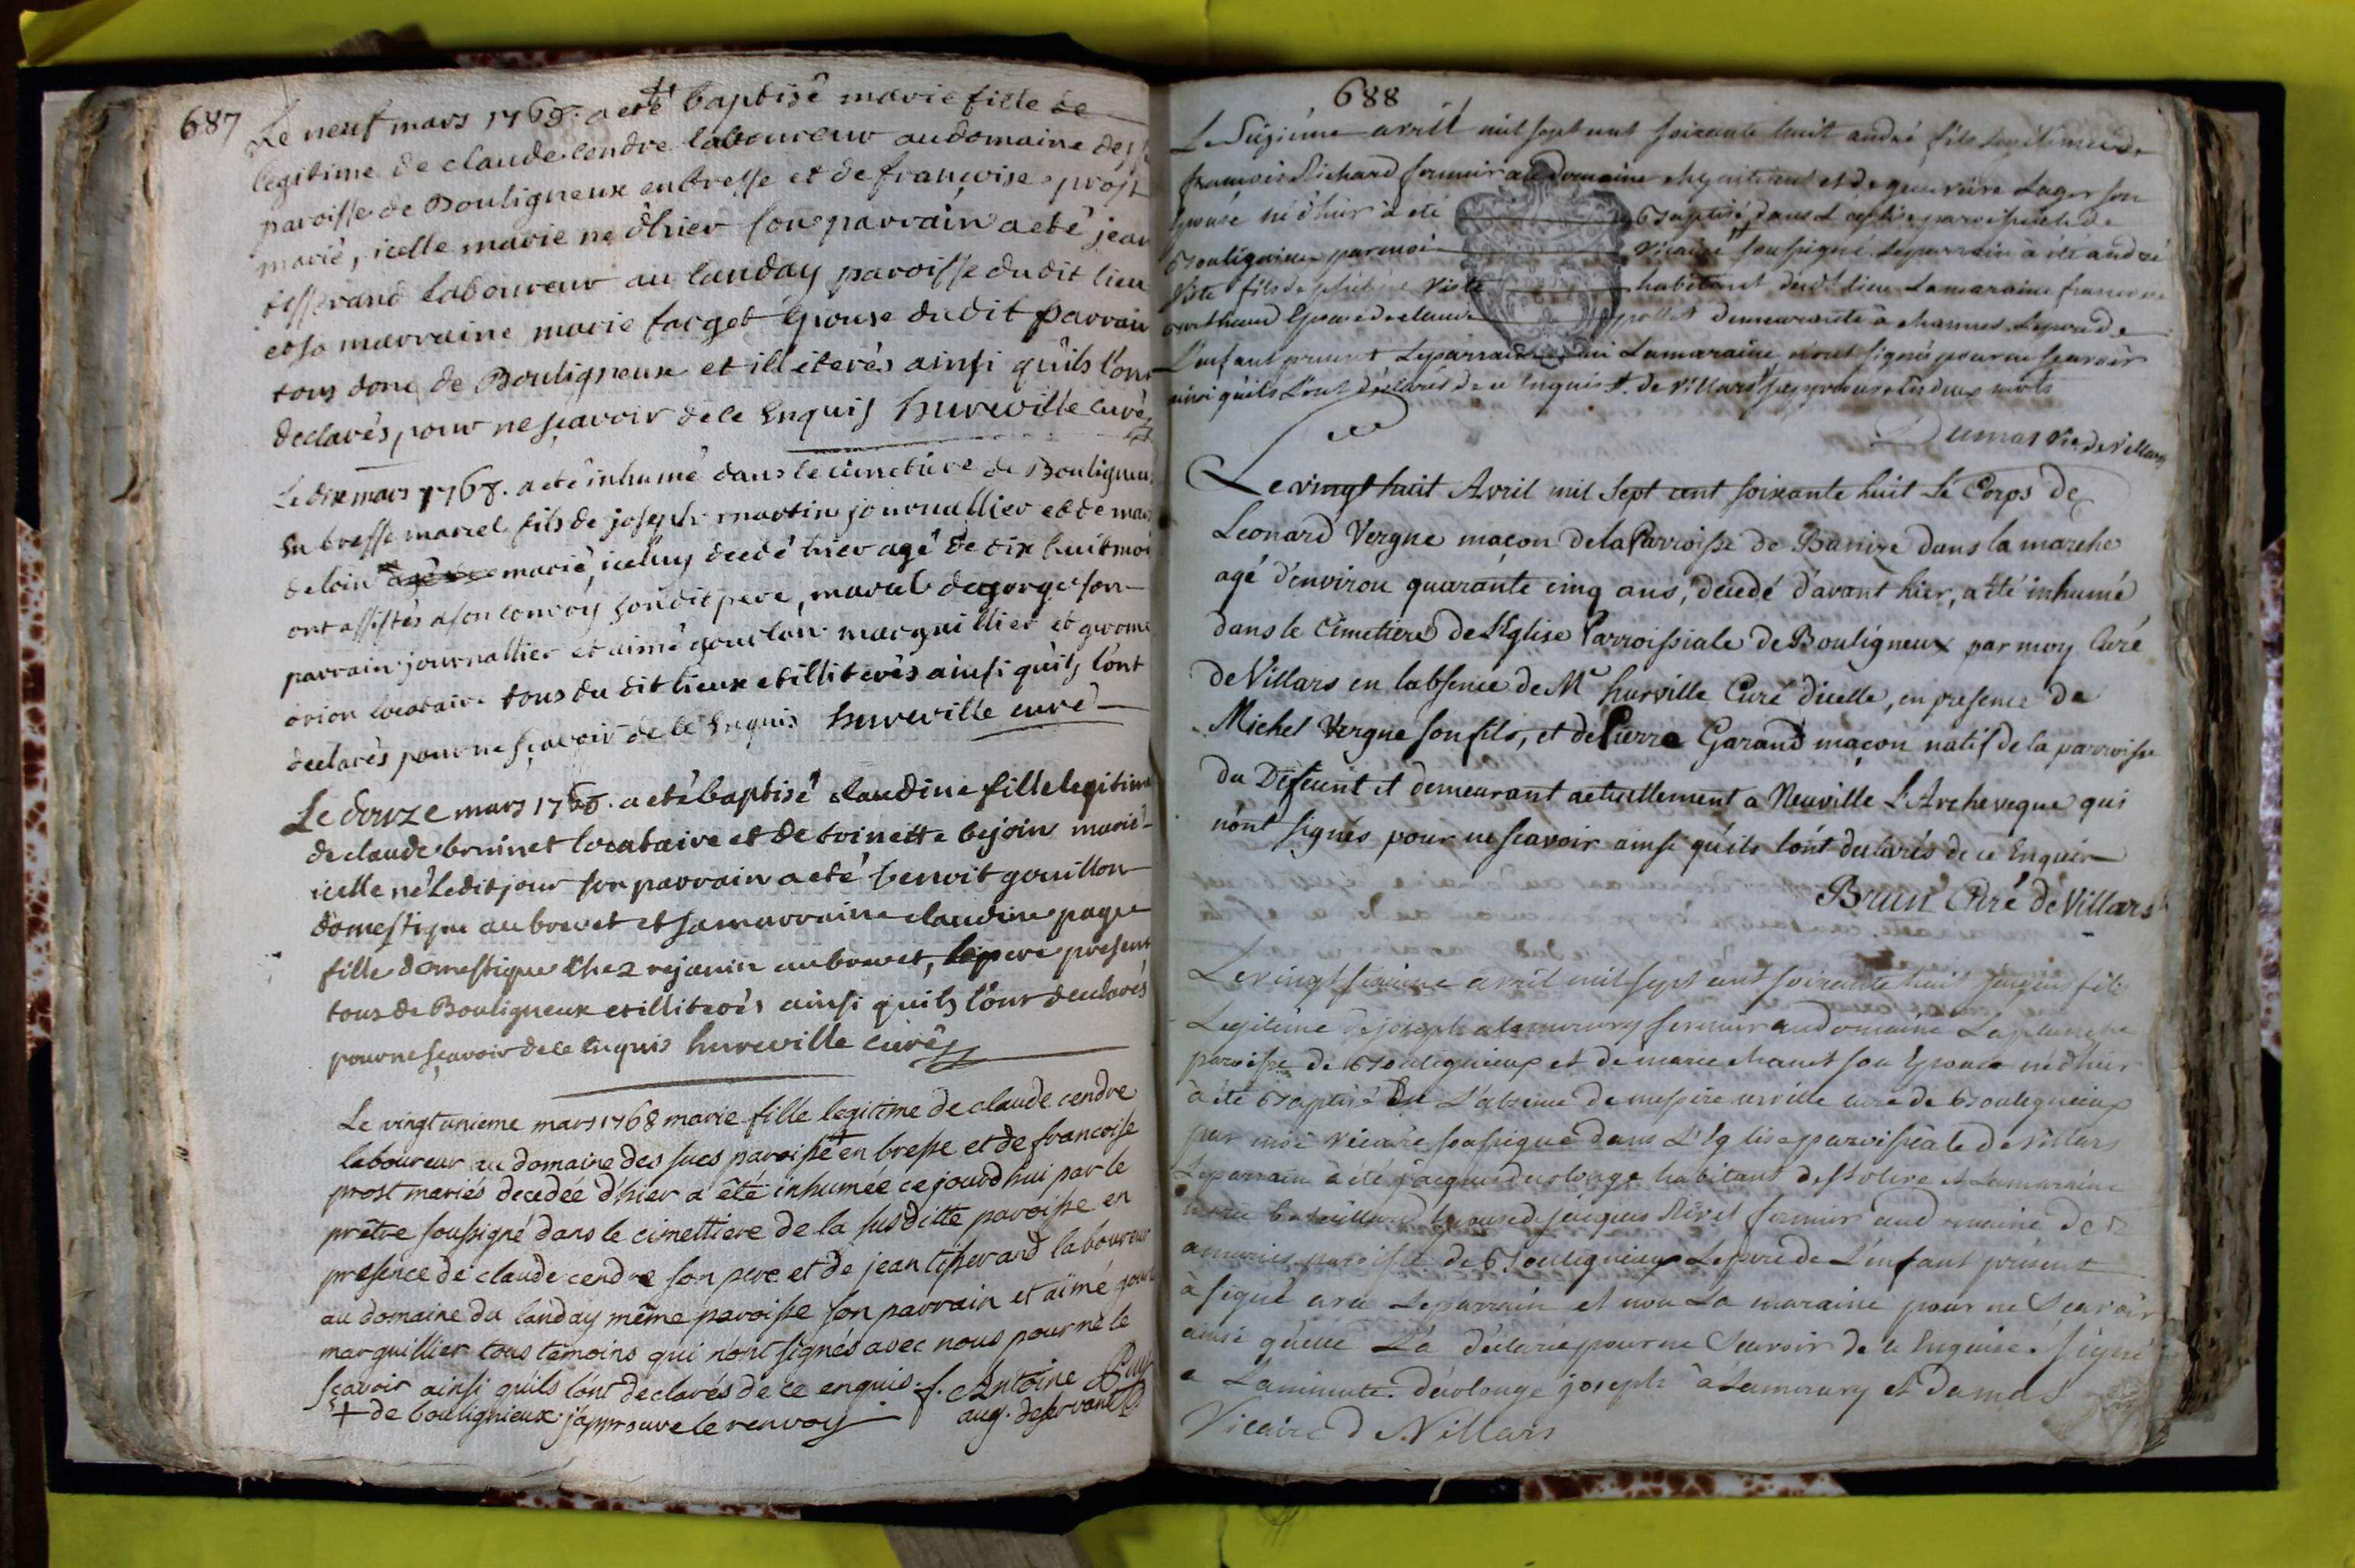 687
Le neuf mars 1768. a eté baptisé marie fille de
legitime de claude cendre laboureur au domaine des
paroisse de Bouligneux en bresse et de françoise prost
marié, icelle marie né d'hier son parrain a eté jean
tisserand laboureur au landay paroisse du dit lieu
et sa marraine marie farget épouse du dit parrain
tous donc de Bouligneux et illiterés ainsi qu'ils l'ont
declarés, pour ne sçavoir de ce Enquis hureville curé
Le dix mars 1768. a eté inhumé dans le cimetiere de Bouligneux
En bresse marcel fils de joseph martin journallier et de
marié, iceluy decedé hier agé de dix huit mois
ont assistés a son convoy son dit pere, degorge son
parrain journallier et aimé gouillon marguillier et
locataire tous du dit lieux et illiterés ainsi qu'ils l'ont
declarés pour ne sçavoir de ce Enquis hureville curé
Le douze mars 1768. a eté baptisé claudine fille legitime
de claude bruinet locataire et de toinette bejoin marié
icelle né le dit jour son parrain a eté benoit gouillon
domestique au brevet et sa marraine claudine
fille domestique chez rejanin au brevet, le pere present
tous de Bouligneux et illiterés ainsi qu'ils l'ont declarés
pour ne sçavoir de ce Enquis hureville curé
Le vingt unieme mars 1768 marie fille legitime de claude cendre
laboureur au domaine des sucs paroisse + en bresse et de francoise
prost mariés decedée d'hier a été inhumée ce jourd'hui par le
prêtre soussigné dans le cimettiere de la susditte paroisse en
presence de claude cendre son pere et de jean tisserand laboureur
au domaine du landay même paroisse son parrain et aimé
marguillier tous témoins qui n'ont signés avec nous pour ne le
sçavoir ainsi qu'ils l'ont déclarés de ce enquis. f. Antoine
+ de boulignieux j'approuve le renvoy aug. deservant
688
Le Sizieme avril mil sept cent soixante huit andré fils legitime de
francois Richard fermier au domaine et de son
épouse né d'hier à eté Baptisé dans L'eglise paroissiale de
Boulignieux par moi Vicaire soussigné Le parrain à eté andré
fils de habitant dud. lieu La maraine francoise
Epouse de claude demeurante à Le pere de
L'enfant present Le parrain La maraine n'ont signés pour ne sçavoir
ainsi qu'ils L'ont déclarés de ce Enquis de Villars
Dumas Vic. de Villars
Le vingt huit Avril mil Sept cent soixante huit Le Corps de
Leonard Vergne maçon de la Parroisse de Banize dans la marche
agé d'environ quarante cinq ans, decedé d'avant hier, a été inhumé
dans le Cimetiere de l'Eglise Parroissiale de Bouligneux par moy Curé
de Villars en l'absence de Mr hurville Curé d'icelle, en presence de
Michel Vergne son fils, et de Pierre Garand maçon natif de la parroisse
du Defunt et demeurant actuellement a Neuville L'Archeveque qui
n'ont signés pour ne scavoir ainsi qu'ils l'ont declarés de ce Enquis
Brun Curé de Villars
Le vingt sixieme avril mil sept cent soixante huit fils
Legitime de joseph alamercery fermier au domaine Laplanche
paroisse de Boulignieux et de marie son Epouse né d'hier
à été Baptisé En L'absence de messire urville curé de Boulignieux
par moi vicaire soussigné dans L'Eglise paroissiale de Villars
Le parrain a été jacques habitant et La maraine
Epouse de jacques fermier au domaine des
paroisse de Boulignieux Le pere de L'enfant present
à signé avec Le parrain et non La maraine pour ne Sçavoir
ainsi qu'elle L'a déclarée pour ne Scavoir de ce Enquise. signé
a La minute. joseph et Dumas
Vicaire de Villars